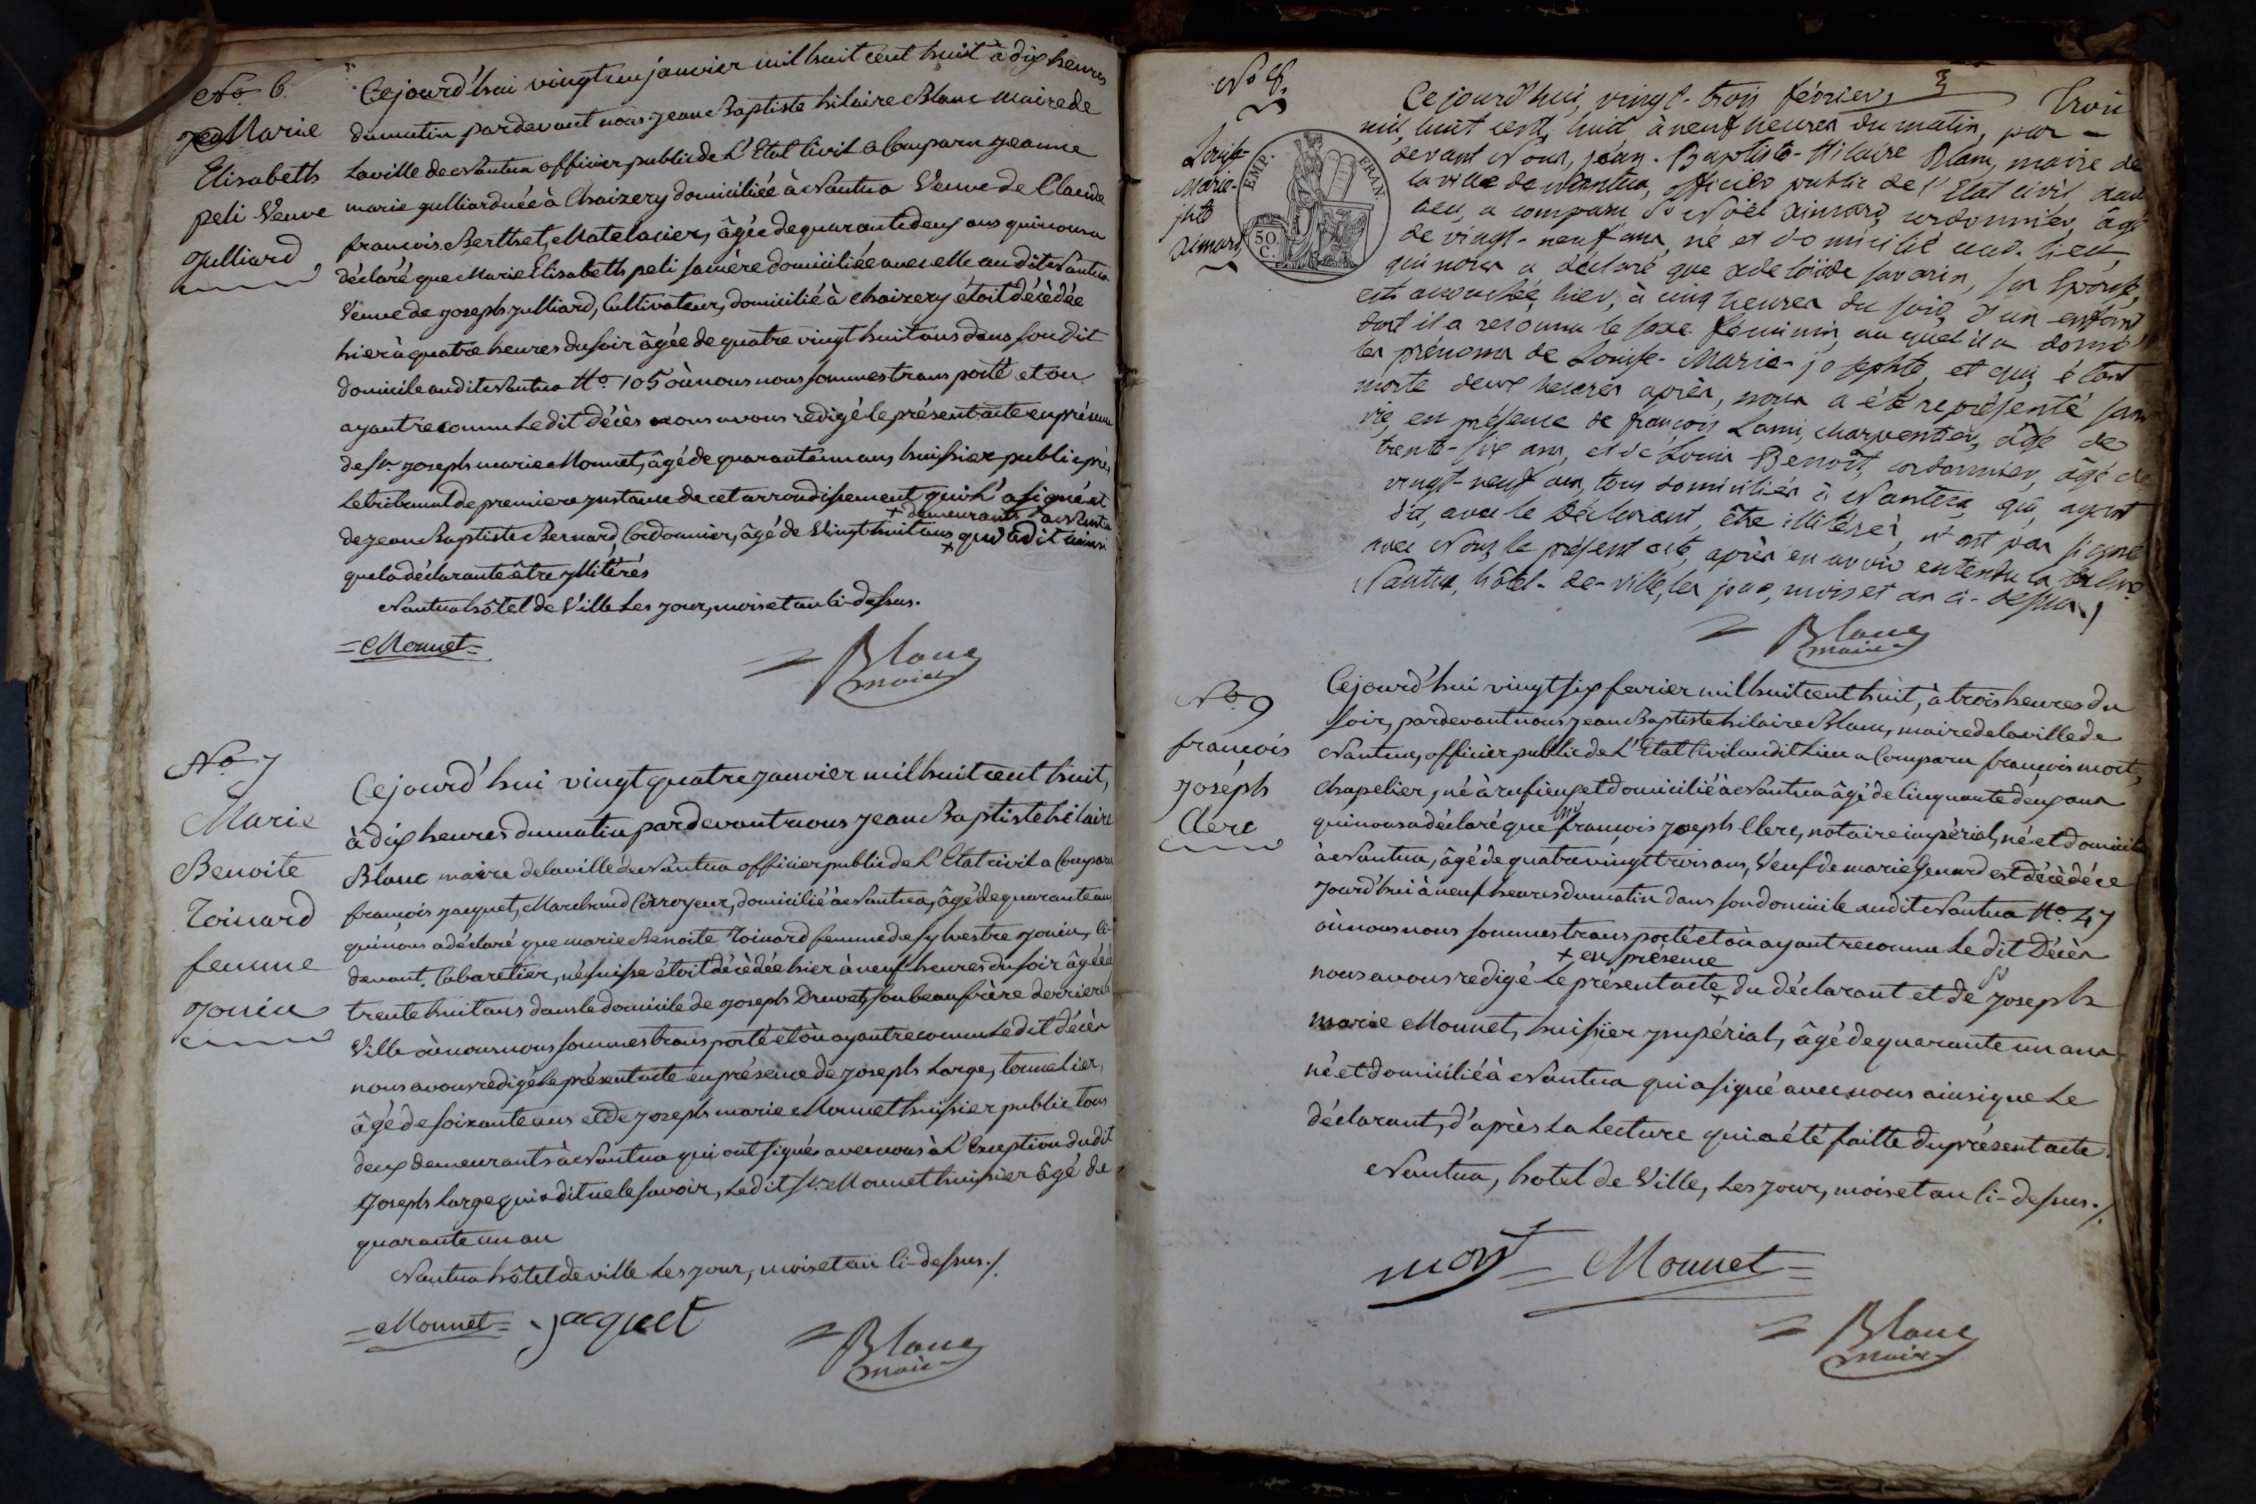 No. 6
Marie
Elisabeth
peli Veuve
Julliard
Cejourd'hui vingt un janvier mil huit cent huit à dix heures
du matin pardevant nous jean Baptiste hilaire Blanc Maire de
La ville de Nantua officier public de L'Etat Civil a Comparu jeanne
marie julliard née à Chaizery domiciliée à Nantua Veuve de Claude
françois Berthet, Matelacier, âgée de quarante deux ans qui nous a
déclaré que Marie Elisabeth peli sa mère domiciliée avec elle au dit Nantua
Veuve de joseph julliard, Cultivateur, domicilié à chaizery étoit décèdée
hier à quatre heures du soir âgée de quatre vingt huit ans dans son dit
domicile au dit Nantua No. 105 où nous nous sommes transporté et ou
ayant reconnu Le dit Décès nous avons redigé le présent acte en présence
de Sr. joseph marie Monnet, âgé de quarante un ans huissier public près
Le tribunal de premiere jnstance de cet arrondissement qui L'a signé et
+ demeurants à Nantua
de jean Baptiste Bernard, Cordonnier, âgé de Vingt huit ans + qui a dit ainsi
que la déclarante être jllitérés
Nantua hôtel de Ville Les jour, mois et an Ci-dessus.
= Monnet =
= Blanc
maire
No. 7
Marie
Benoite
Toinard
femme
Jonin
Cejourd'hui vingt quatre janvier mil huit cent huit,
à dix heures du matin pardevant nous jean Baptiste hilaire
Blanc maire de la ville de Nantua officier public de L'Etat civil a Comparu
françois jacquet, Marchand Corroyeur, domicilié à Nantua, âgé de quarante ans
qui nous a déclaré que marie Benoite Toinard femme de sylvestre jonin, Ci-
devant Cabaretier, né suisse étoit décèdée hier à neuf heures du soir âgée de
trente huit ans dans le domicile de joseph Druvet, son beau frère derriere la
Ville où nous nous sommes transporté et où ayant reconnu Le dit décès
nous avons redigé Le présent acte en présence de joseph Large, tonnelier,
âgé de soixante ans et de joseph marie Monnet huissier public tous
deux demeurants à Nantua qui ont signés avec nous à L'Exception du dit
Joseph Large qui a dit ne le savoir, Le dit Sr. Monnet huissier âgé de
quarante un an
Nantua hôtel de ville Les jour, mois et an Ci-dessus./.
= Monnet = jacquet
= Blanc
maire
3
Trois
No 8.
Louise-
Marie-
jphte
Aimard
EMP. FRAN.
50 C.
Ce jourd'hui, vingt-trois février
mil huit cent huit à neuf heures du matin, par-
devant Nous, jean-Baptiste-Hilaire Blanc, maire de
la ville de Nantua, officier public de l'Etat civil dud.
lieu, a comparu Sr Noël Aimard, cordonnier, âgé
de vingt-neuf ans, né et domicilié aud. lieu,
qui nous a déclaré que adelaïde savarin, son Epouse,
est accouchée, hier, à cinq heures du soir, d'un enfant
dont il a reconnu le sexe féminin, au quel il a donné
les prénoms de Louise-Marie-josephte, et qui, étant
morte deux heures après, nous a été représenté sans
vie, en présence de françois Lami, charpentier, âgé de
trente-six ans, et de Louis Benoît, cordonnier, âgé de
vingt-neuf ans, tous domiciliés à Nantua, qui, ayant
dit, avec le Déclarant, être illitérés, n'ont pas signé
avec Nous, le présent acte, après en avoir entendu la lecture.
Nantua, hôtel-de-ville, les jour, mois et an ci-dessus./
= Blanc
maire
No. 9
françois
joséph
Clerc
Cejourd'hui vingt six fevrier mil huit cent huit, à trois heures du
soir, pardevant nous jean Baptiste hilaire Blanc, maire de la ville de
Nantua, officier public de L'Etat Civil au dit Lieu a Comparu françois mort,
Chapelier, né à rufieux et domicilié à Nantua âgé de Cinquante deux ans
qui nous a déclaré que françois joseph Clerc, notaire impérial, né et domicilié
à Nantua, âgé de quatre vingt trois ans, Veuf de marie Genard est décèdé ce
jourd'hui à neuf heures du matin dans son domicile au dit Nantua No. 47
où nous nous sommes transporté et où ayant reconnu Le dit Décès
+ en présence
nous avons redigé Le présent acte + du déclarant et de Sr joseph
marie Monnet, huissier jmpérial, âgé de quarante un ans
né et domicilié à Nantua qui a signé avec nous ainsi que Le
déclarant, d'après La Lecture qui a été faitte du présent acte.
Nantua, hotel de Ville, Les jour, mois et an Ci-dessus./.
mort = Monnet =
= Blanc
maire